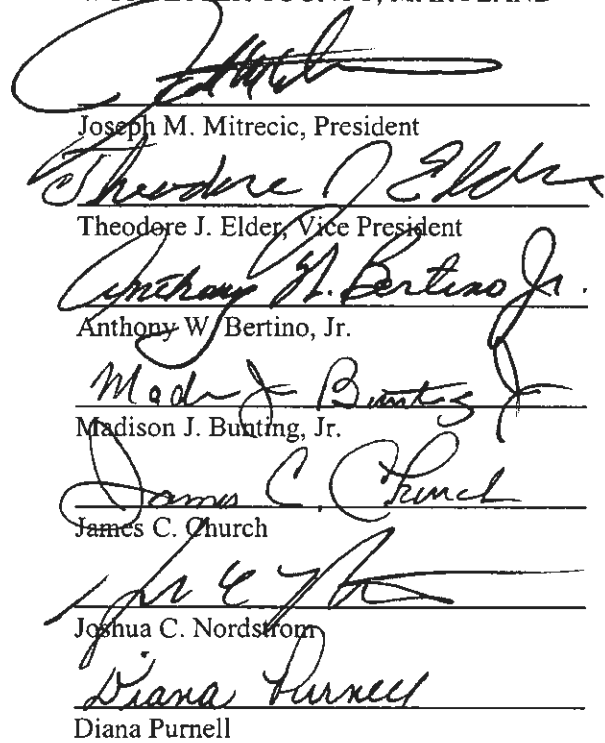 WORCESTER COUNTY, MARYLAND
Joseph M. Mitrecic, President
Theodore J Elder
Theodore J. Elder, Vice President
Anthony W. Bertino Jr.
Anthony W. Bertino, Jr.
Madison J. Bunting, Jr.
James C. Church
James C. Church
Joshua C. Nordstrom
Diana Purnell
Diana Purnell